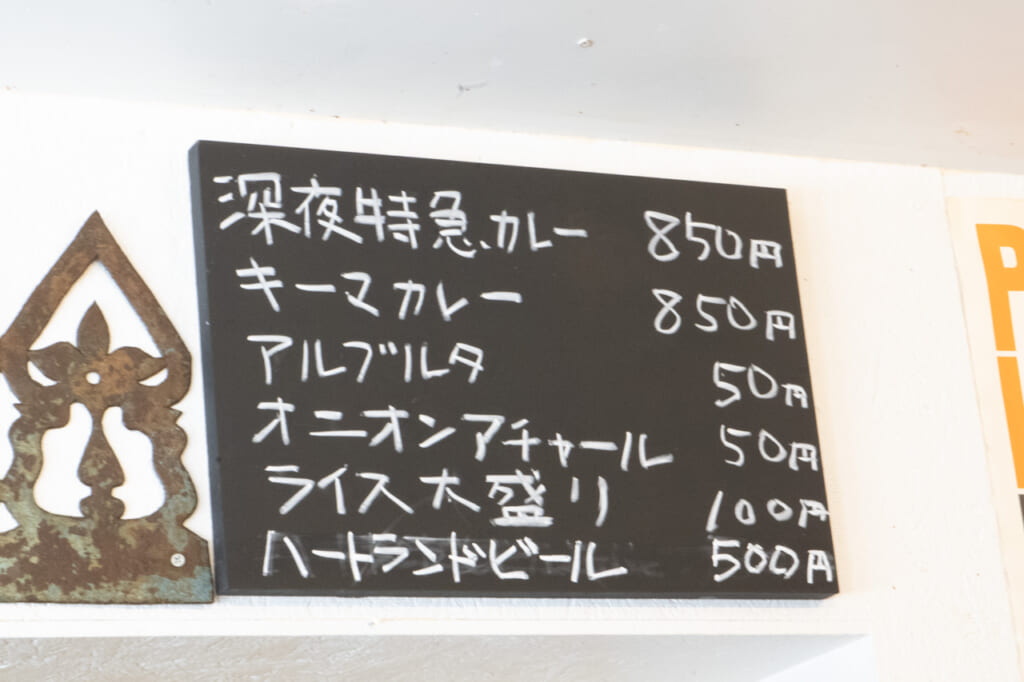 深夜特急カレー 850円
キーマカレー 850円
アルブルタ 50円
オニオンアチャール 50円
ライス大盛り 100円
ハートランドビール 500円
P